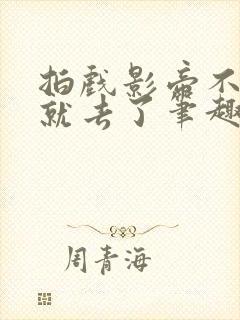 拍戏影帝不
就去了笔趣
周青海